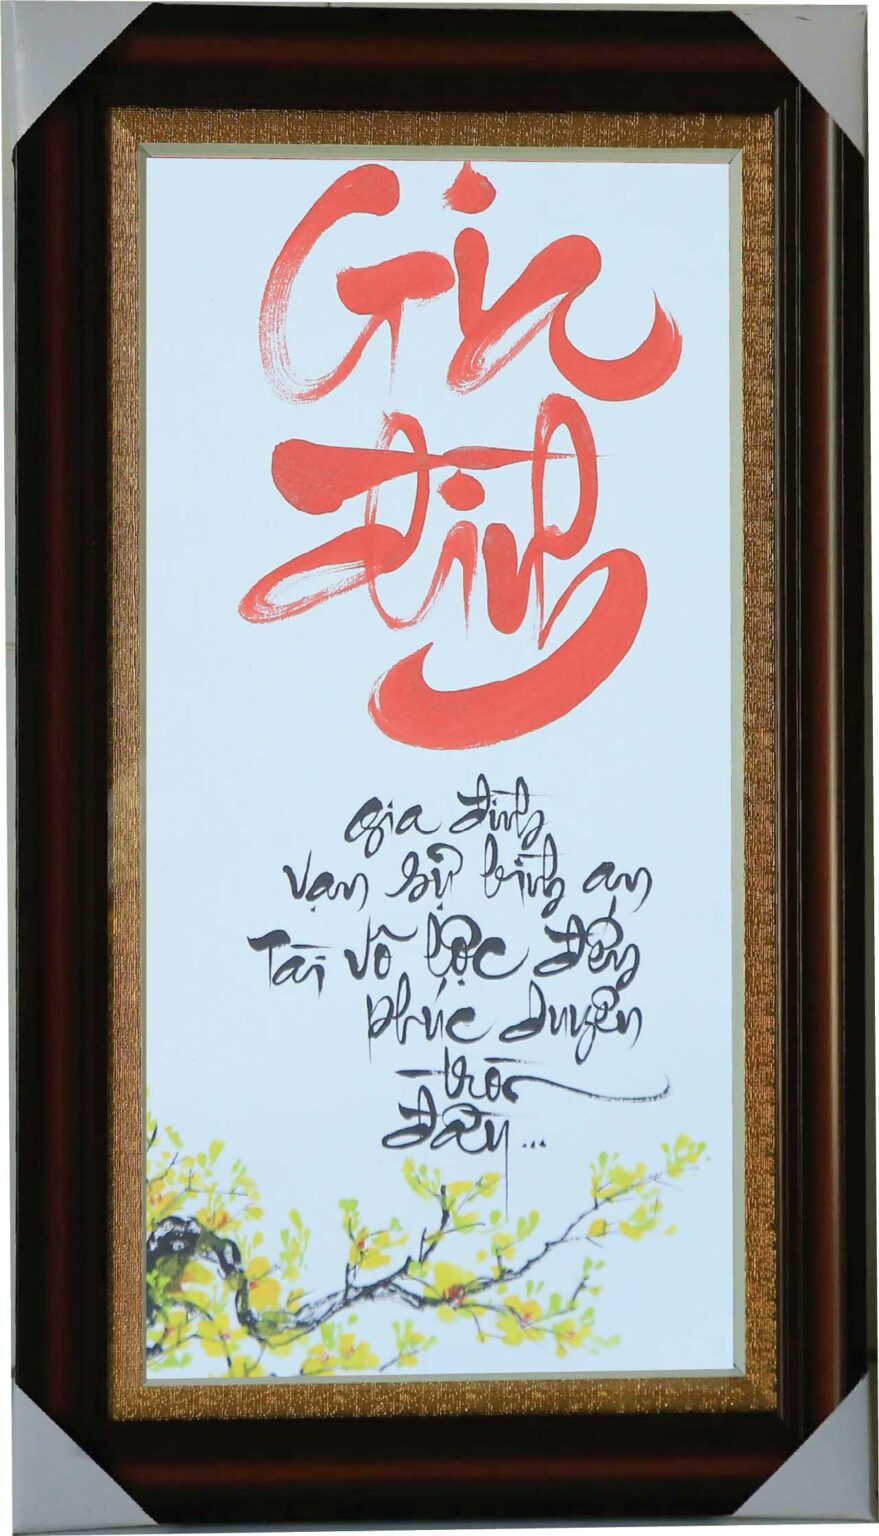 Gia
đình
gia đình
vạn sự bình an
Tài vô lộc đến
phúc duyên
tròn
đầy...